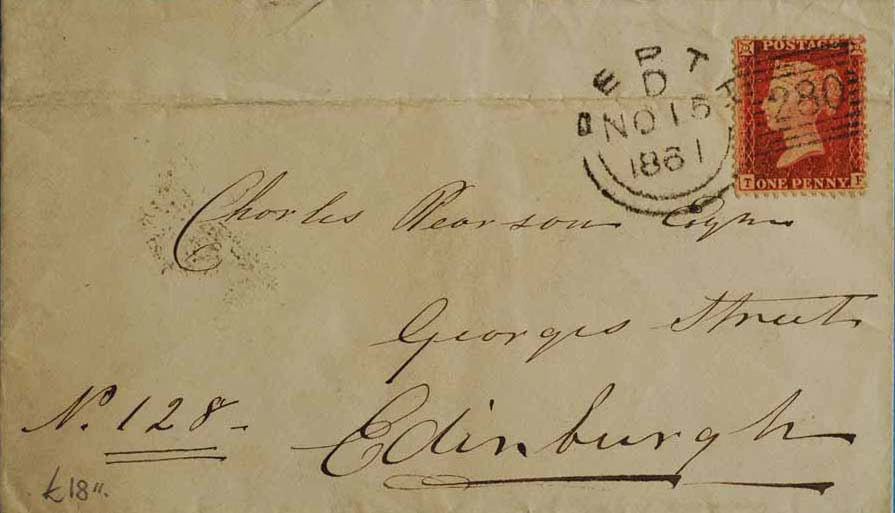 PERTH
D
NO 15
1861
280
POSTAGE
T ONE PENNY F
Charles Pearson Esqre
Georges Street
No. 128
Edinburgh
£18".